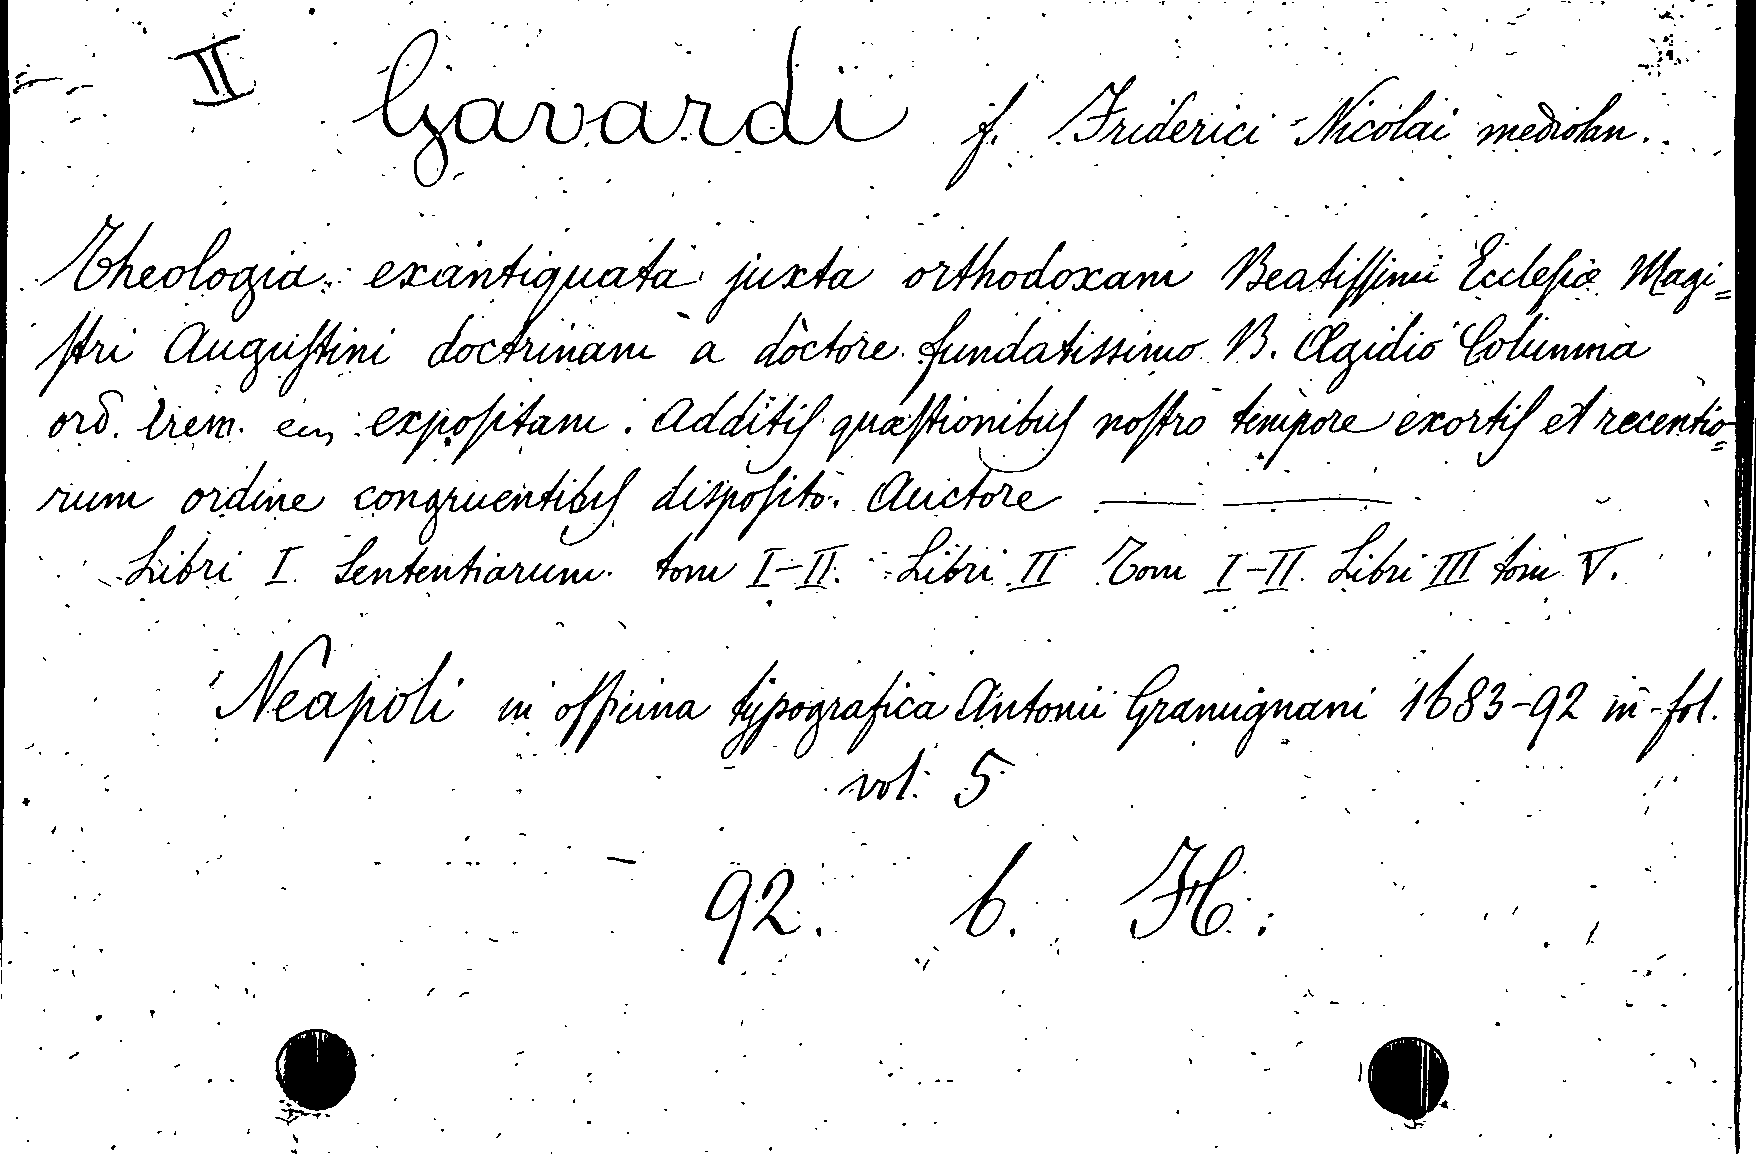 II Gavardi f. Friderici-Nicolai mediolan.
Theologia exantiquata juxta orthodoxam Beatissimi Ecclesiæ Magi=
stri Augustini doctrinam a doctore fundatissimo B. Ægidio Columna
ord. Erem. expositam. Additis quæstionibus nostro tempore exortis et recentio=
rum ordine congruentibus disposito. Auctore — —
Libri I Sententiarum tom I-II. Libri II Tom I-II. Libri III tom V.
Neapoli in officina typografica Antonii Gramignani 1683-92 in-fol.
vol. 5
92. b. H.